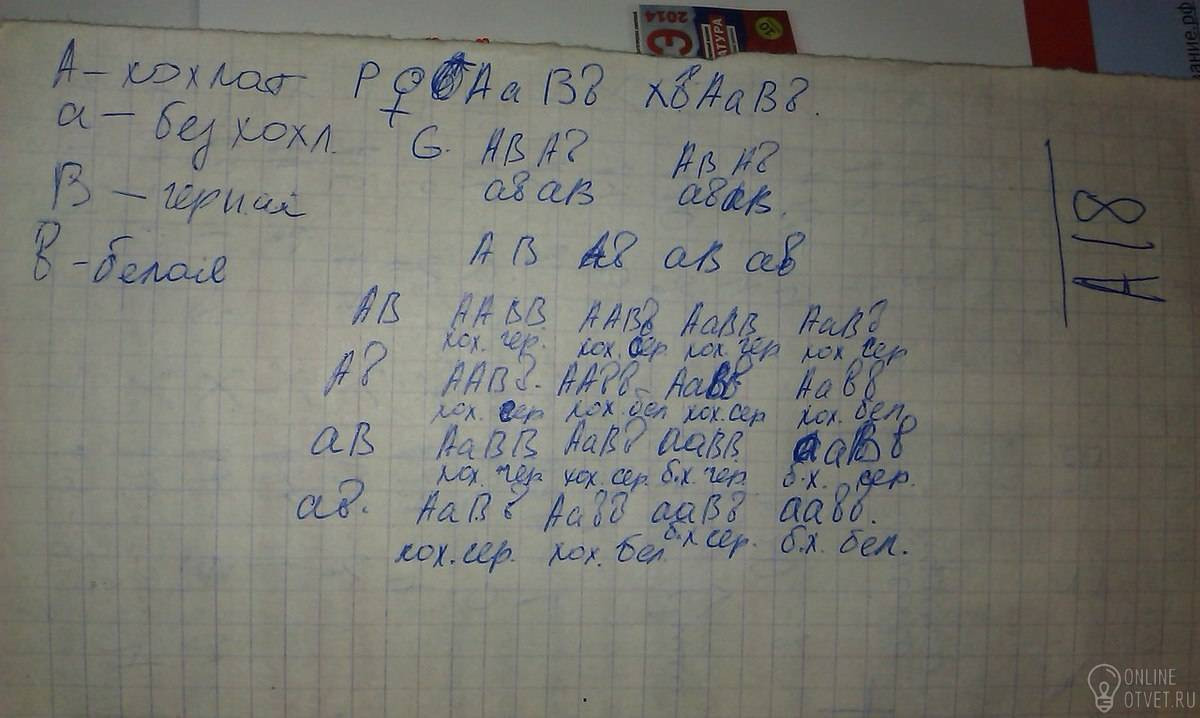 2014
Э
АТУРА
ание.рф
А – хохлат Р ♀ АаВв х АаВв.
а – без хохл. G. АВ Ав АВ Ав
ав аВ ав аВ.
В – черная
в – белая АВ Ав аВ ав
АВ ААВВ ААВв АаВВ АаВв
хох. чер. хох. сер. хох. чер хох сер
Ав ААВв. ААвв АаВв Аавв
хох. сер. хох. бел хох. сер хох. бел.
аВ АаВВ АаВв ааВВ ааВв
хох. чер. хох. сер. б.х. чер. б.х. сер.
ав. АаВв Аавв ааВв аавв.
хох. сер. хох. бел б.х сер. б.х. бел.
А18
ONLINE
OTVET.RU